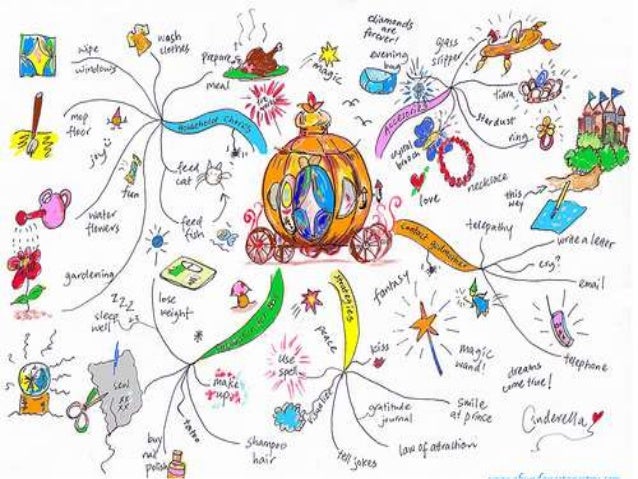 wipe
windows
wash
clothes
prepare
meal
mop
floor
joy
fun
water
flowers
gardening
feed
cat
feed
fish
Household chores
magic
diamonds
are
forever!
evening
bag
Accessories
glass
slipper
tiara
stardust
ring
crystal
brooch
necklace
love
this
way
contact godmother
telepathy
write a letter
cry?
email
telephone
magic
wand!
dreams
come true!
fantasy
Strategies
peace
use
spell
kiss
smile
at prince
gratitude
journal
law of attraction
tell jokes
lose
weight
zzz
sleep
well
sew
xx
xx
make
up
tattoo
buy
nail
polish
shampoo
hair
Cinderella